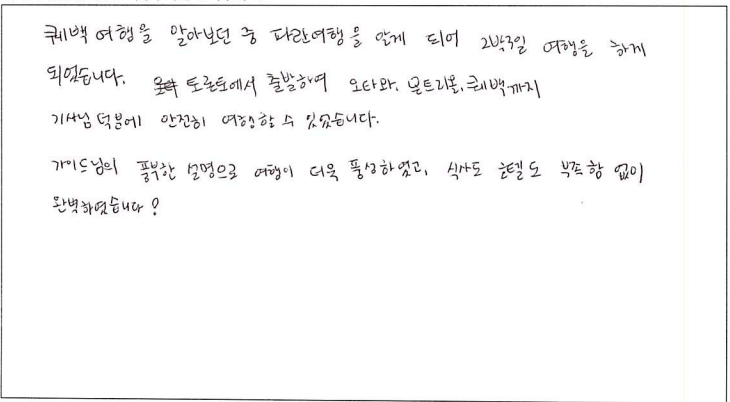 퀘백 여행을 알아보던 중 파란여행을 알게 되어 2박3일 여행을 하게
되었습니다. 토론토에서 출발하여 오타와, 몬트리올, 퀘백까지
기사님 덕분에 안전히 여행할 수 있었습니다.
가이드님의 풍부한 설명으로 여행이 더욱 풍성하였고, 식사도 호텔도 부족함 없이
완벽하였습니다!